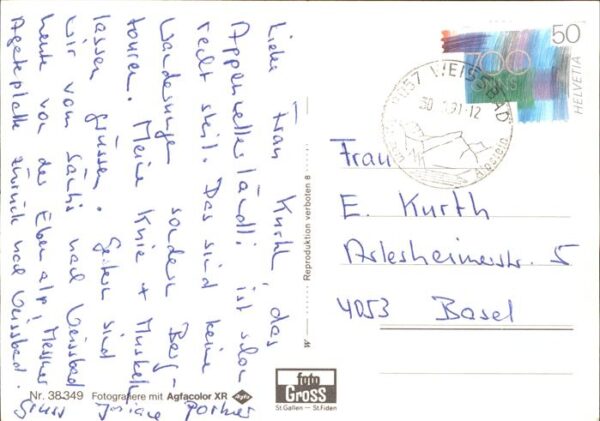 Liebe Frau Kurth, das
Appenzellerländli ist schon
recht steil. Das sind keine
Wanderungen sondern Berg-
touren. Meine Knie + Muskeln
lassen grüssen. Gestern sind
wir vom Säntis nach Weissbad
heute von der Ebenalp, Messmer
Agateplatte zurück nach Weissbad.
Gruss Josiane Portner
50
HELVETIA
700
9057 WEISSBAD
91-12
Alpstein
Frau
E. Kurth
Arlesheimerstr. 5
4053 Basel
Reproduktion verboten 8
W
Nr. 38349 Fotografiere mit Agfacolor XR Agfa
foto
GROSS
St.Gallen — St.Fiden